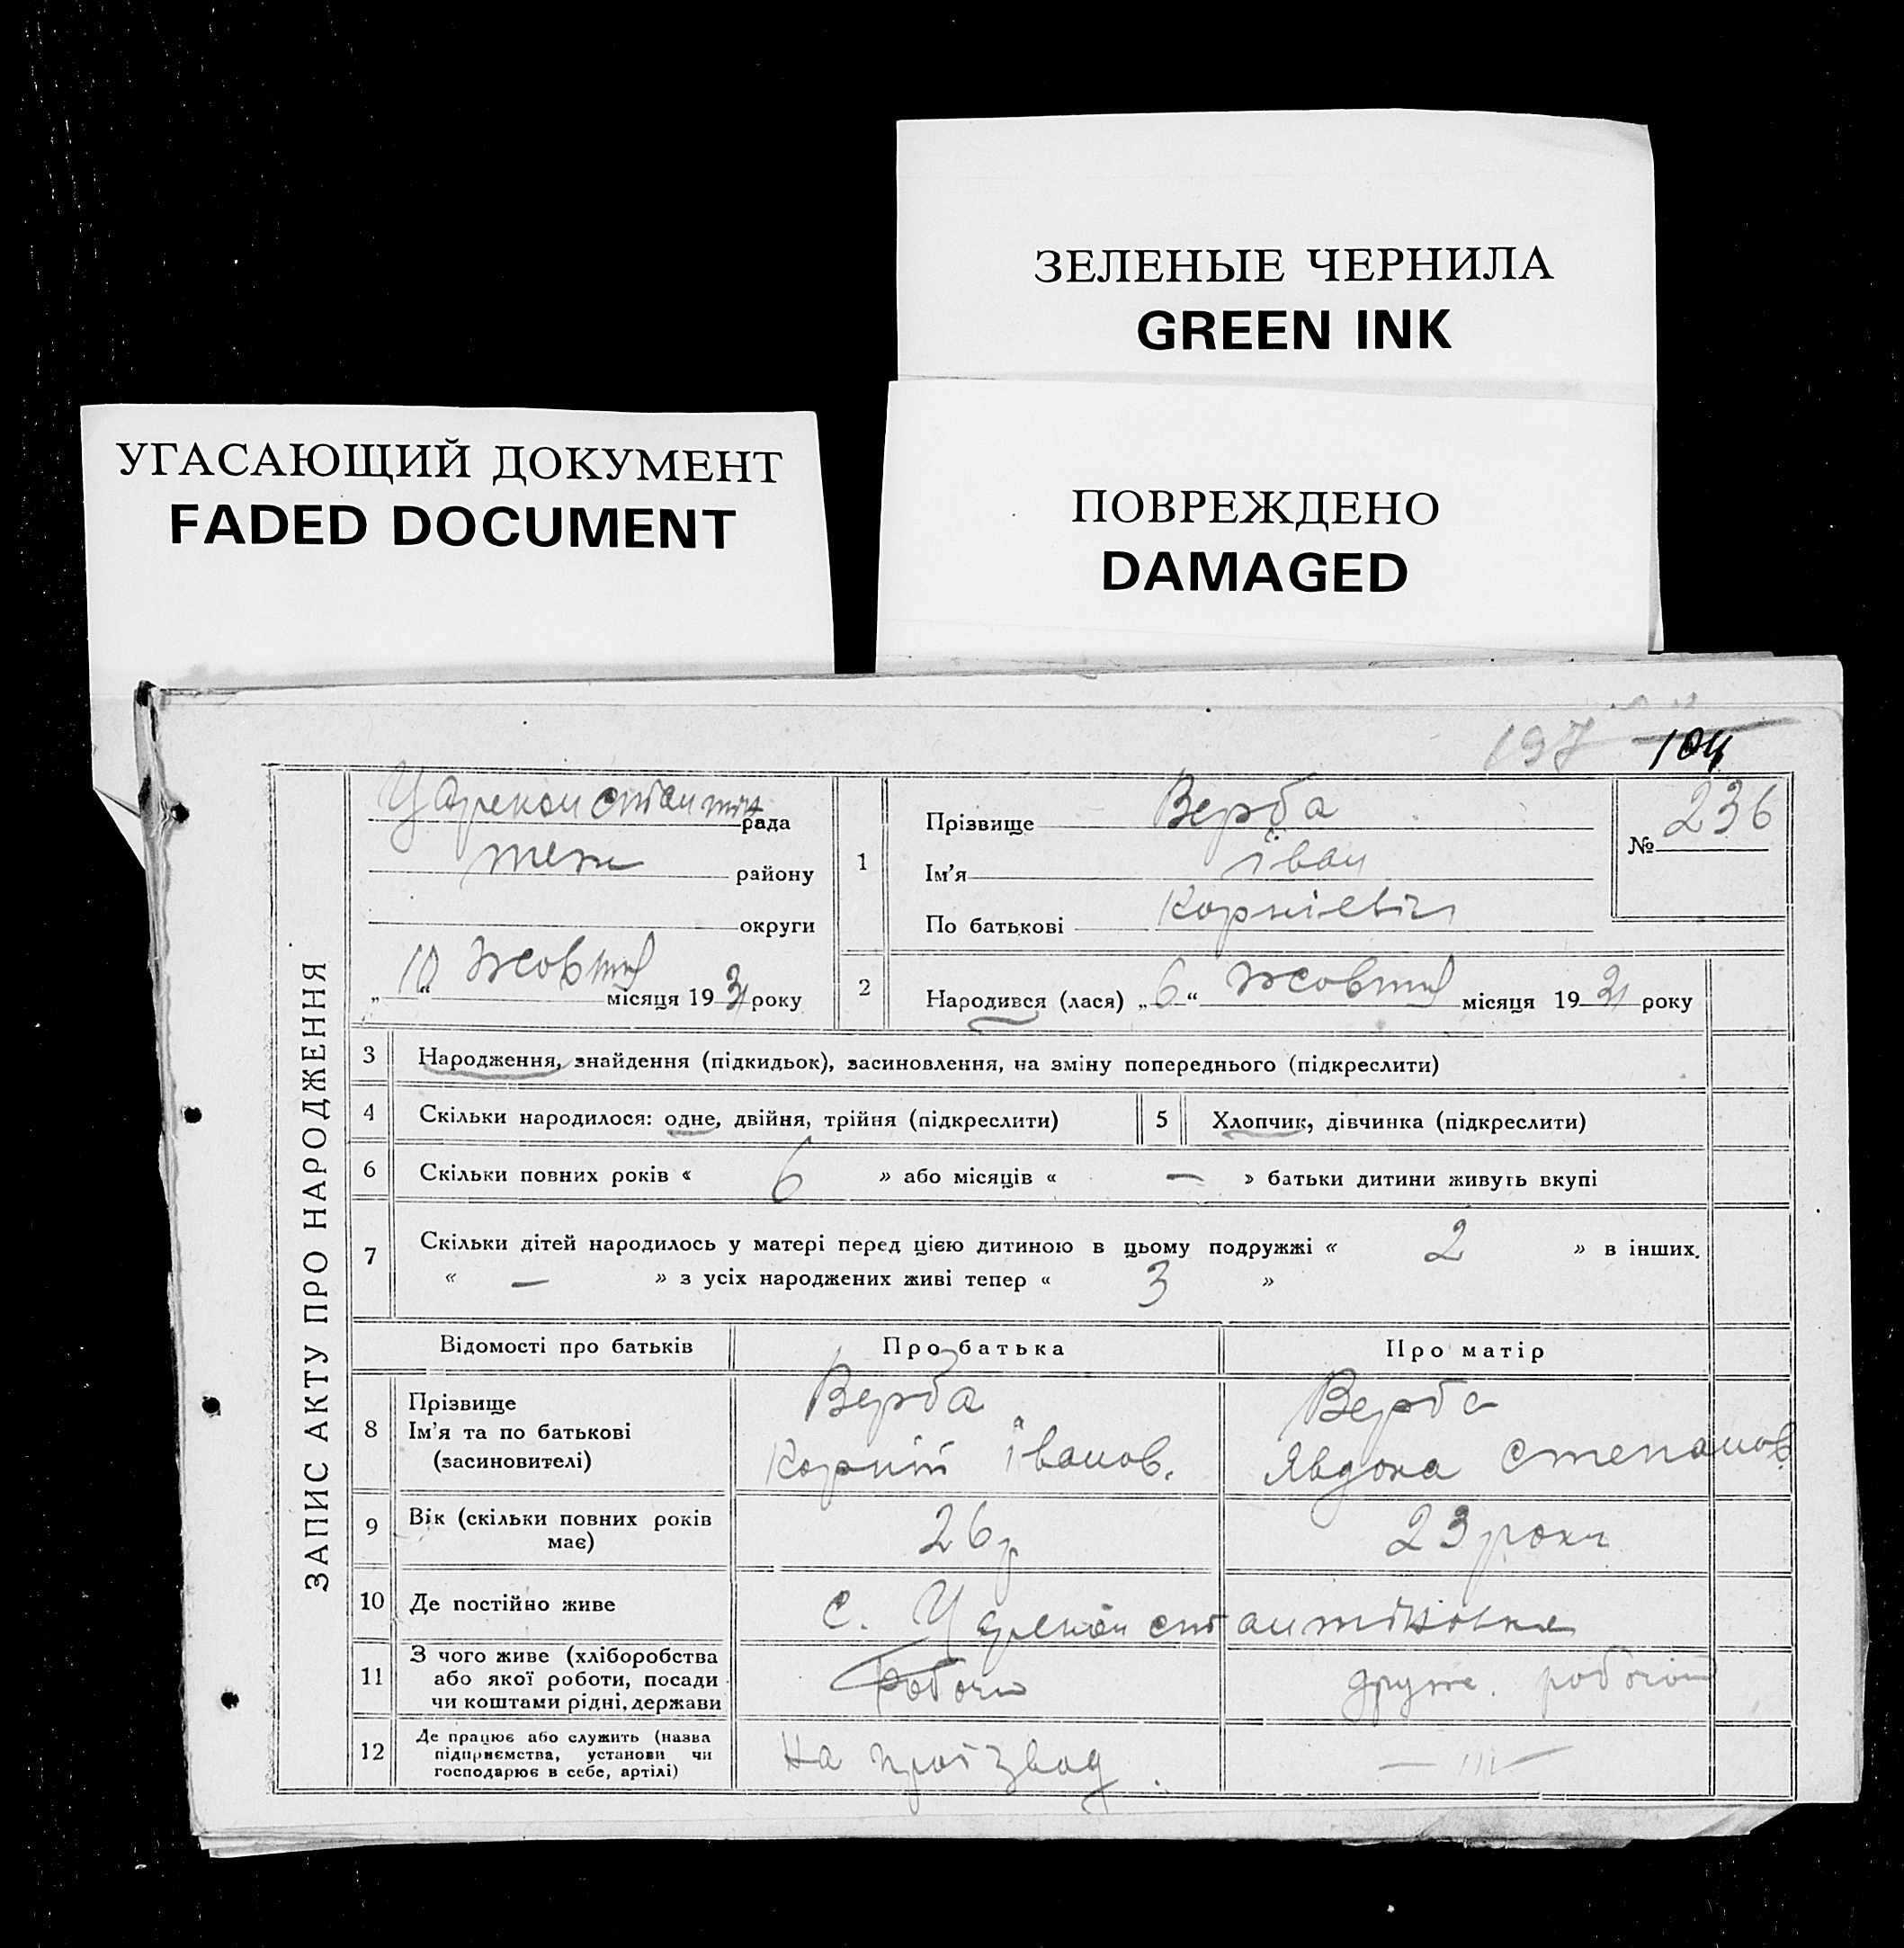 ЗЕЛЕНЫЕ ЧЕРНИЛА
GREEN INK
УГАСАЮЩИЙ ДОКУМЕНТ
FADED DOCUMENT
ПОВРЕЖДЕНО
DAMAGED
197 104
ЗАПИС АКТУ ПРО НАРОДЖЕННЯ
Цареконстант рада
теж району
округи
„10“ Жовтня місяця 1931 року
1
Прізвище Верба
Ім'я Іван
По батькові Корнієвіч
№ 236
2 Народився (лася) „6“ Жовтня місяця 1931 року
3 Народження, знайдення (підкидьок), засиновлення, на зміну попереднього (підкреслити)
4 Скільки народилося: одне, двійня, трійня (підкреслити) 5 Хлопчик, дівчинка (підкреслити)
6 Скільки повних років « 6 » або місяців « — » батьки дитини живуть вкупі
7 Скільки дітей народилось у матері перед цією дитиною в цьому подружжі « 2 » в інших.
« — » з усіх народжених живі тепер « 3 »
Відомості про батьків Про батька Про матір
8 Прізвище
Ім'я та по батькові
(засиновителі)
Верба
Корній Іванов.
Верба
Явдоха Степанов.
9 Вік (скільки повних років
має)
26 р
23 роки
10 Де постійно живе с. Цареконстантіновка
11 З чого живе (хліборобства
або якої роботи, посади
чи коштами рідні, держави
робочи
друже. робочого
12 Де працює або служить (назва
підприємства, установи чи
господарює в себе, артілі)
на проізвод.
— " —